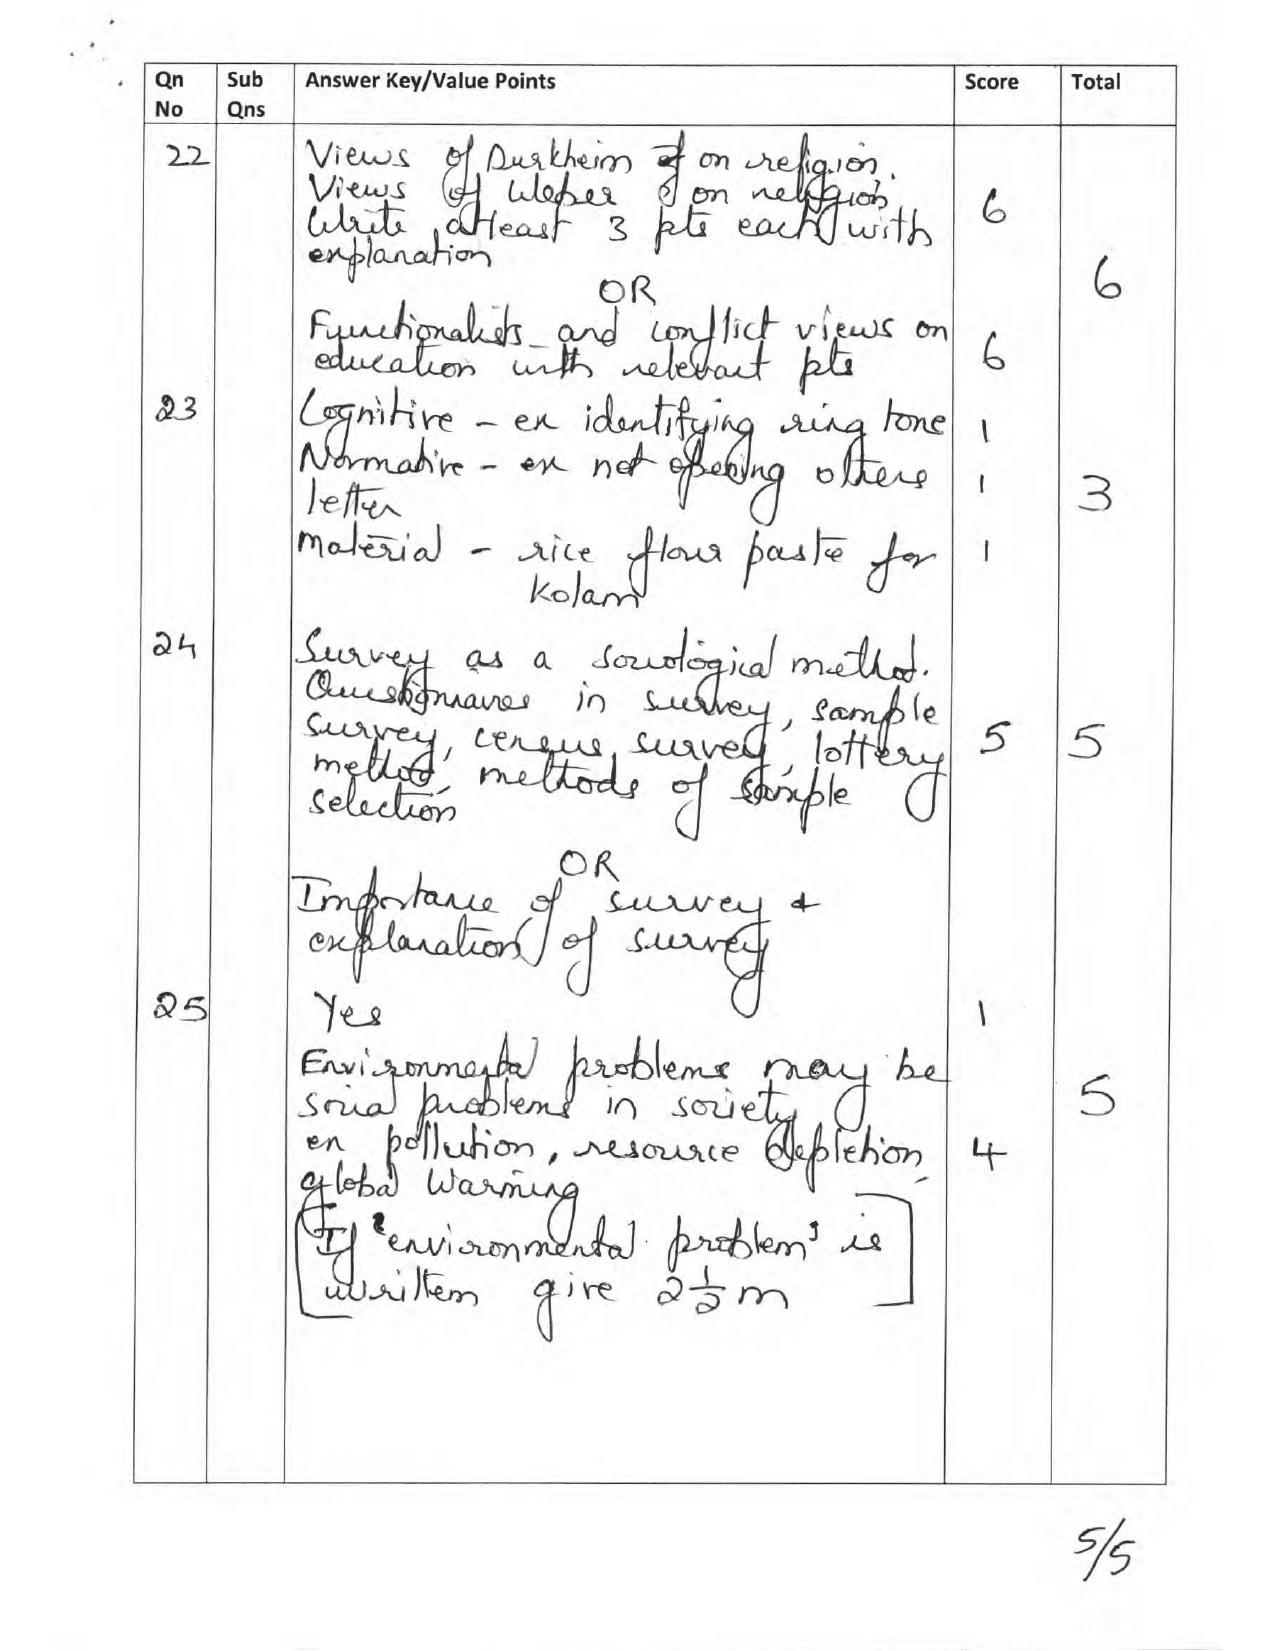 Qn No Sub Qns Answer Key/Value Points Score Total
22 Views of Durkheim on religion.
Views of Weber on religion
Write atleast 3 pts each with 6
explanation
6
OR
Functionalists and conflict views on
education with relevant pts 6
23 Cognitive - ex identifying ring tone 1
Normative - ex not opening others 1
letter 3
Material - rice flour paste for 1
Kolam
24 Survey as a sociological method.
Questionnaires in survey, sample
survey, census survey, lottery 5 5
method, methods of sample
selection
OR
Importance of survey &
explanation of survey
25 Yes 1
Environmental problems may be
social problems in society 5
ex pollution, resource depletion, 4
global warming
[If 'environmental problem' is
written give 2 1/2 m]
5/5